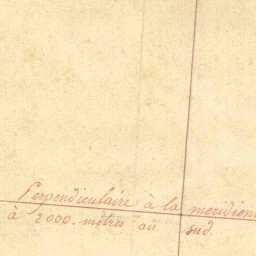 Perpendiculaire à la meridien
à 2000. metres au sud.